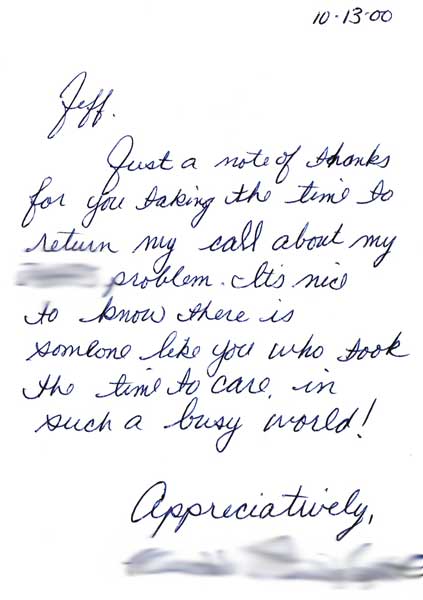 10-13-00
Jeff.
Just a note of thanks
for you taking the time to
return my call about my
problem. It's nice
to know there is
someone like you who took
the time to care, in
such a busy world!
Appreciatively,